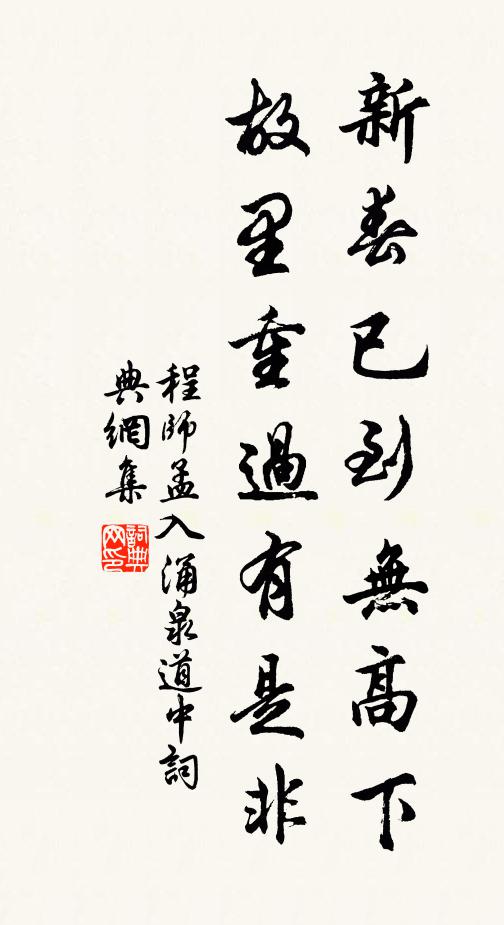 新春已到無高下
故里重過有是非
程師孟入涌泉道中詞
典網集
詞典
网印